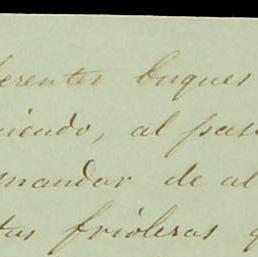 ferentes buques
iendo, al pas
mandar de al
tas frióleras q